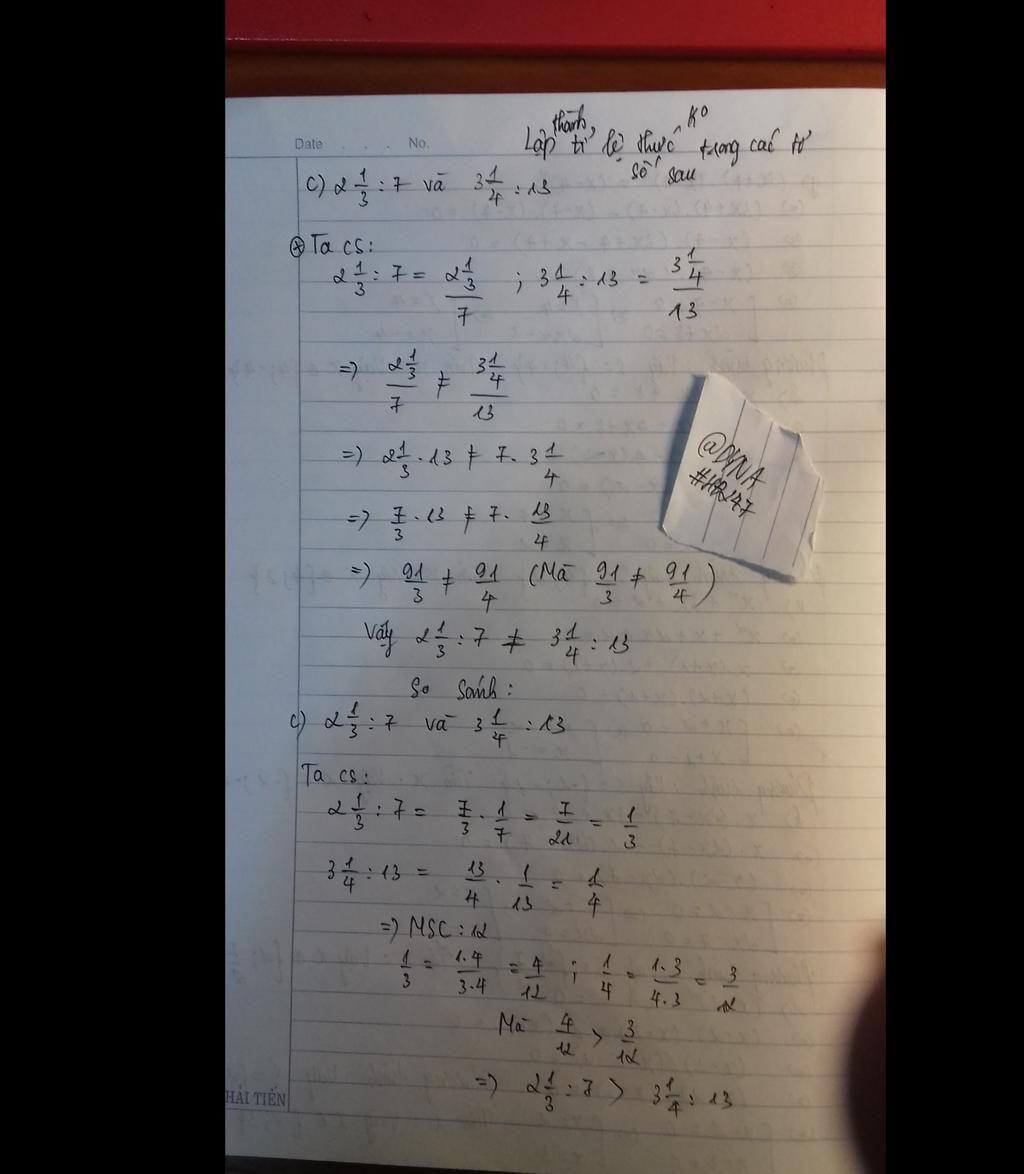 Lập thành K°
tỉ lệ thức trong các tỉ
số sau
Date . . . No.
C) 2 1/3 : 7 và 3 1/4 : 13
⊛ Ta cs:
2 1/3 : 7 = (2 1/3)/7 ; 3 1/4 : 13 = (3 1/4)/13
=) (2 1/3)/7 ≠ (3 1/4)/13
=) 2 1/3 . 13 ≠ 7 . 3 1/4
=) 7/3 . 13 ≠ 7 . 13/4
=) 91/3 ≠ 91/4 (Mà 91/3 ≠ 91/4)
Vậy 2 1/3 : 7 ≠ 3 1/4 : 13
So sánh:
c) 2 1/3 : 7 và 3 1/4 : 13
Ta cs:
2 1/3 : 7 = 7/3 . 1/7 = 7/21 = 1/3
3 1/4 : 13 = 13/4 . 1/13 = 1/4
=) MSC : 12
1/3 = 1.4/3.4 = 4/12 ; 1/4 = 1.3/4.3 = 3/12
Mà 4/12 > 3/12
=) 2 1/3 : 7 > 3 1/4 : 13
HẢI TIẾN